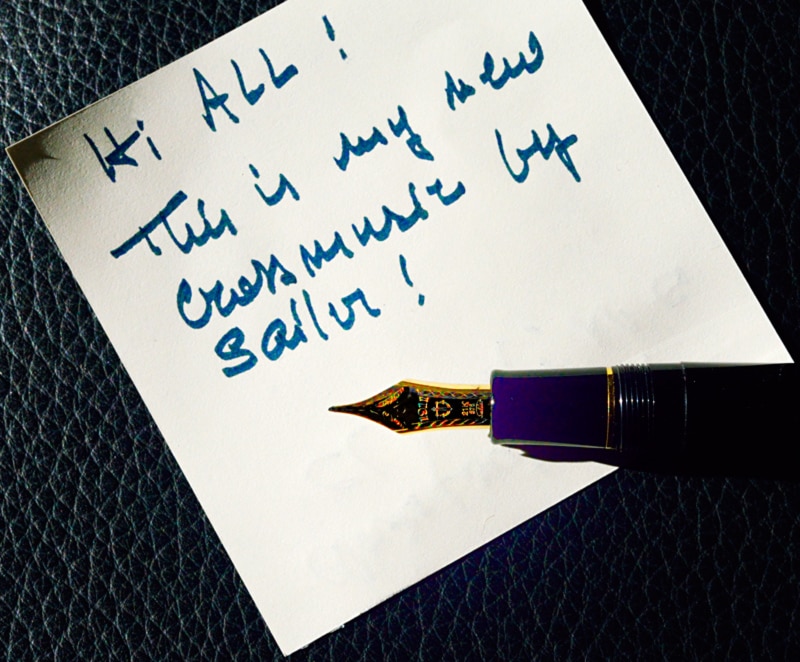 Hi ALL!
This is my new
crossmusic by
Sailor!